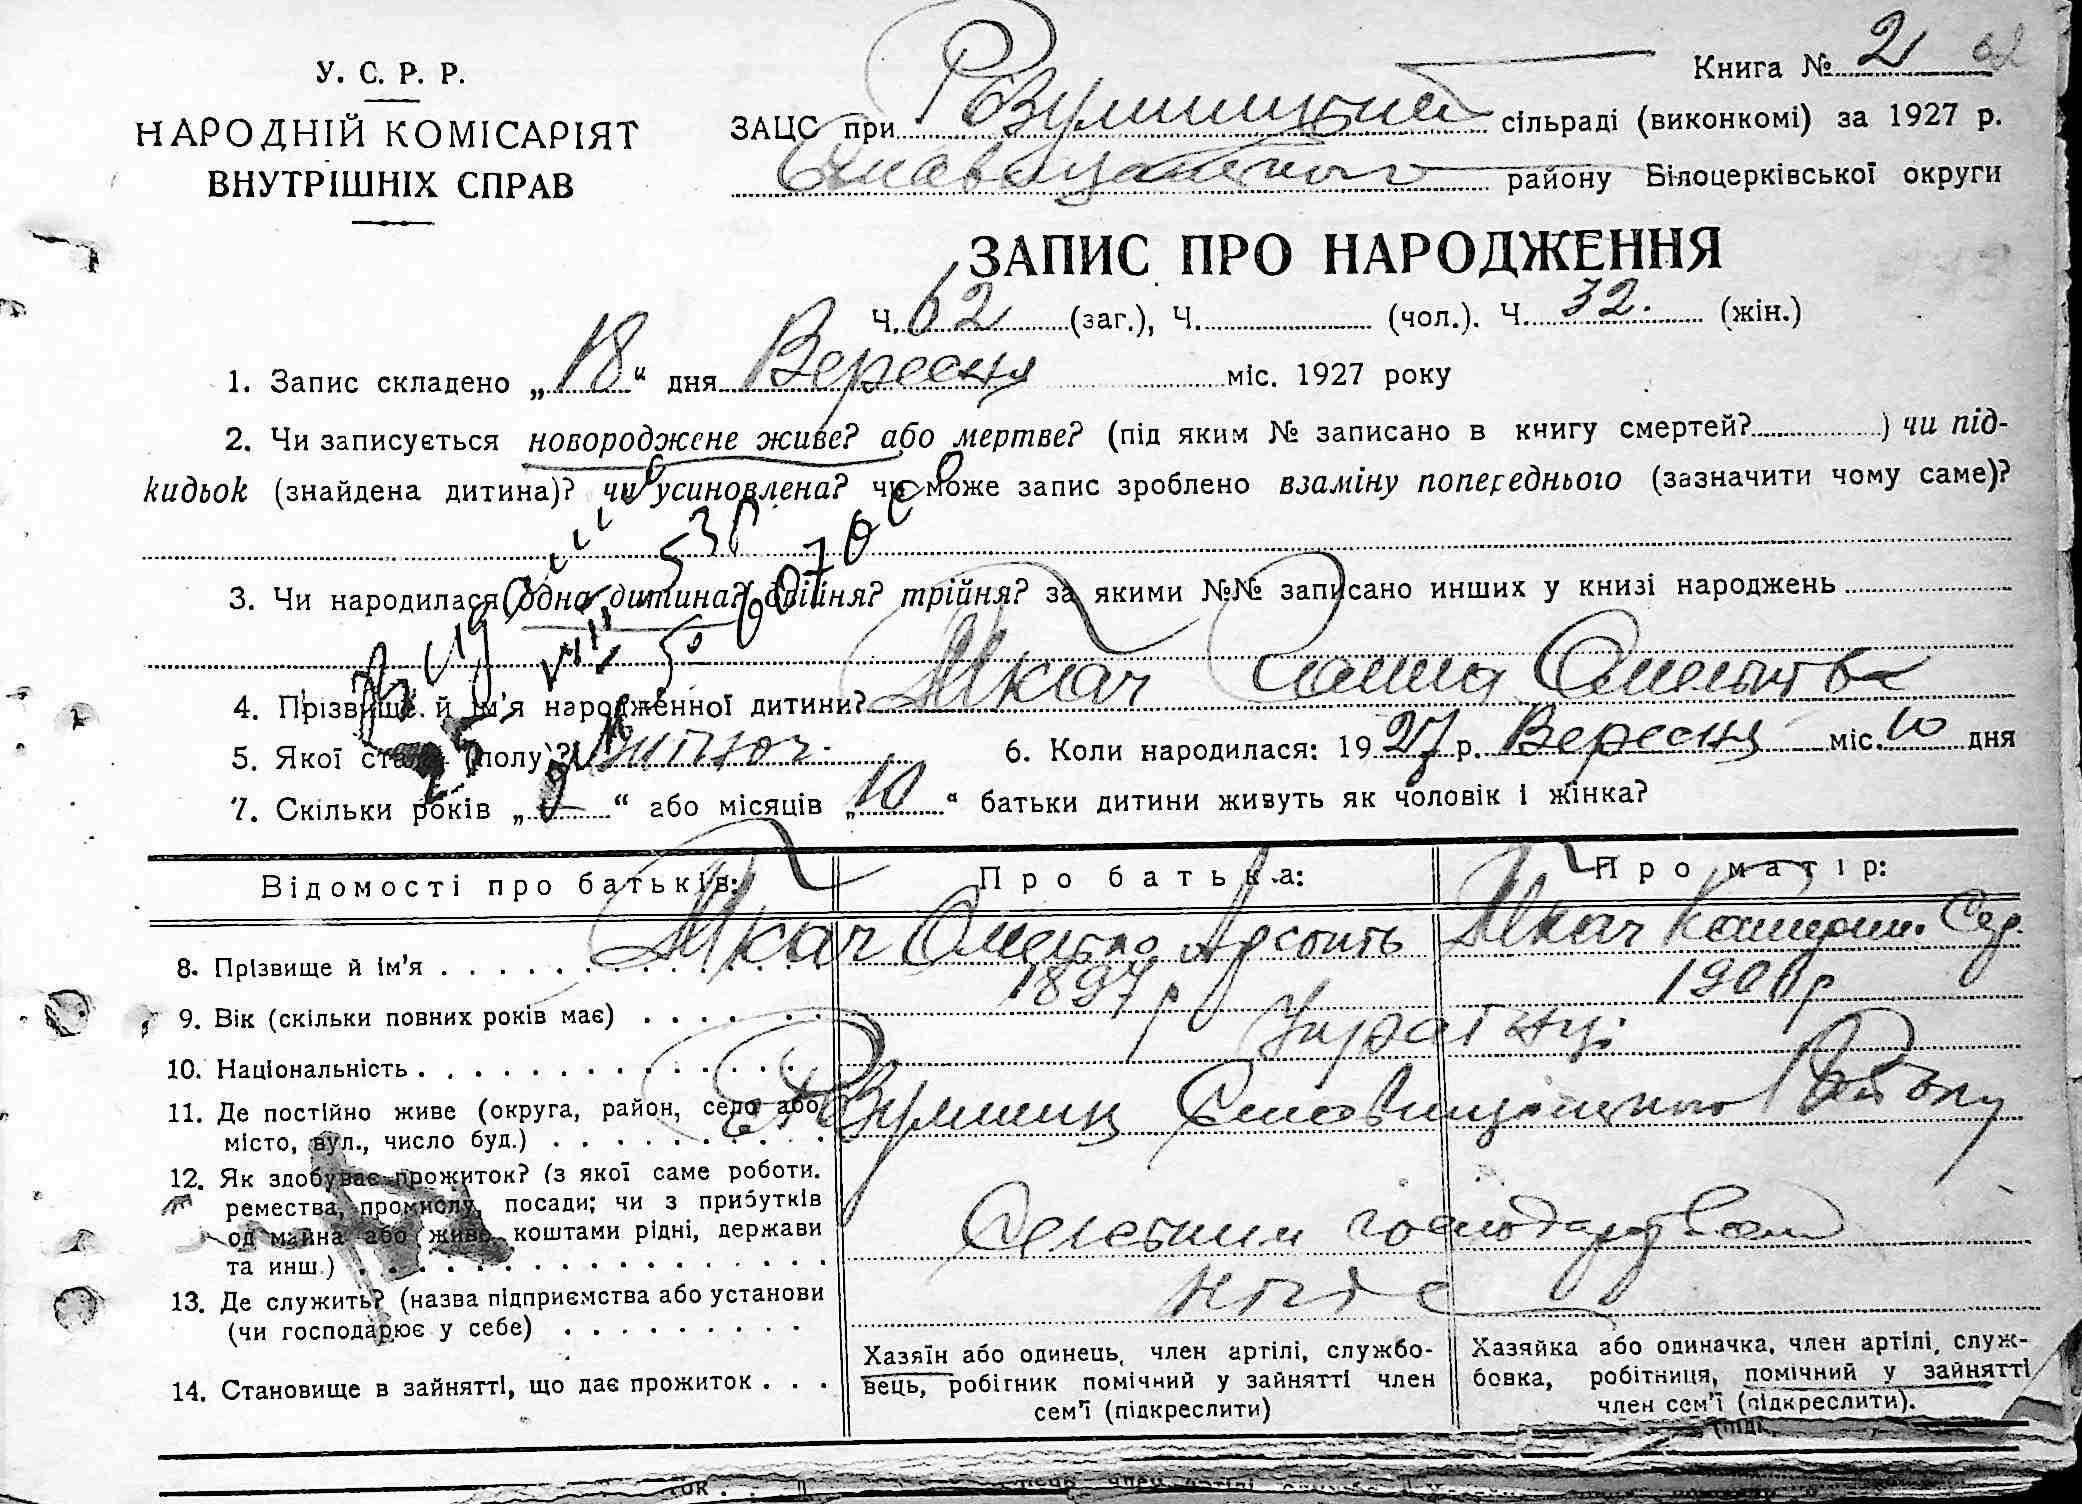 У. С. Р. Р.
НАРОДНІЙ КОМІСАРІЯТ
ВНУТРІШНІХ СПРАВ
Книга № 2
ЗАЦС при Розумницькій сільраді (виконкомі) за 1927 р.
району Білоцерківської округи
ЗАПИС ПРО НАРОДЖЕННЯ
Ч. 62 (заг.), Ч. (чол.). Ч. 32. (жін.)
1. Запис складено „18“ дня Вересня міс. 1927 року
2. Чи записується новороджене живе? або мертве? (під яким № записано в книгу смертей? ) чи під-
кидьок (знайдена дитина)? чи усиновлена? чи може запис зроблено взаміну попереднього (зазначити чому саме)?
3. Чи народилася одна дитина? двійня? трійня? за якими №№ записано инших у книзі народжень
4. Прізвище й ім'я народженної дитини? Ткач Омельков
5. Якої статі (полу)? Жіночої 6. Коли народилася: 1927 р. Вересня міс. 10 дня
7. Скільки років „ “ або місяців „10“ батьки дитини живуть як чоловік і жінка?
Відомості про батьків: Про батька: Про матір:
8. Прізвище й ім'я Ткач Омелько Ткач Катерин.
9. Вік (скільки повних років має) 1897 р 1900 р
10. Національність Українці
11. Де постійно живе (округа, район, село або
місто, вул., число буд.) Розумниці Району
12. Як здобуває прожиток? (з якої саме роботи.
ремества, промислу, посади; чи з прибутків
од майна або живе коштами рідні, держави
та инш.) Сельским господарством
13. Де служить? (назва підприємства або установи
(чи господарює у себе)
14. Становище в зайнятті, що дає прожиток . . .
Хазяїн або одинець, член артілі, службо-
вець, робітник помічний у зайнятті член
сем'ї (підкреслити)
Хазяйка або одиначка, член артілі, служ-
бовка, робітниця, помічний у зайнятті
член сем'ї (підкреслити).